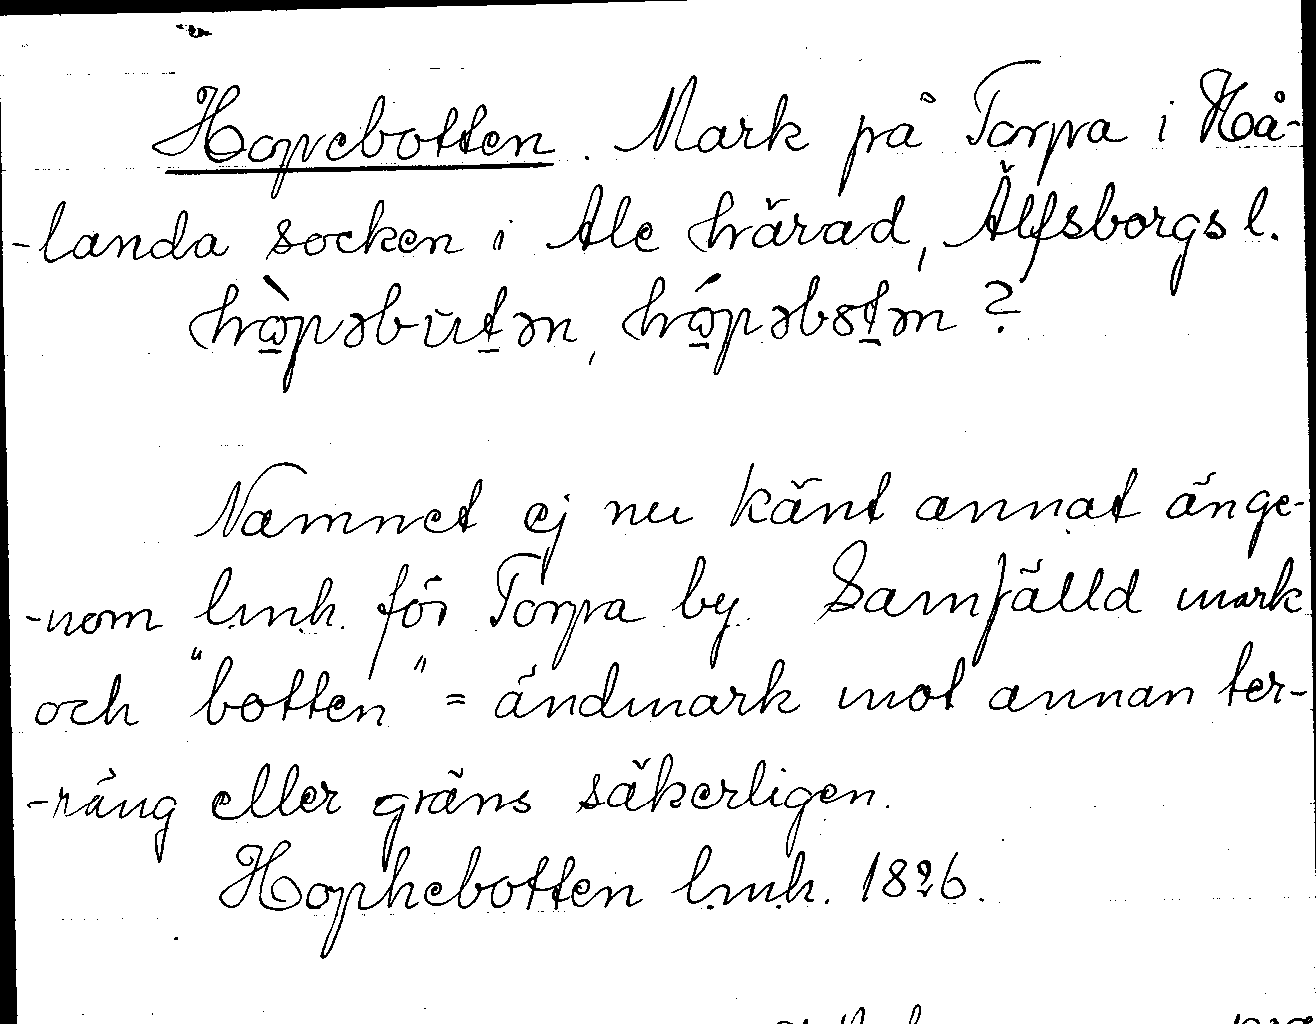 Hopebotten. Mark på Torpa i Hå-
-landa socken i Ale härad, Älfsborgs l.
hòpəbūtən, hópəbötən ?
Namnet ej nu känt annat änge-
-nom lmh. för Torpa by. Samfälld mark
och "botten" = ändmark mot annan ter-
-räng eller gräns säkerligen.
Hophebotten lmh. 1826.